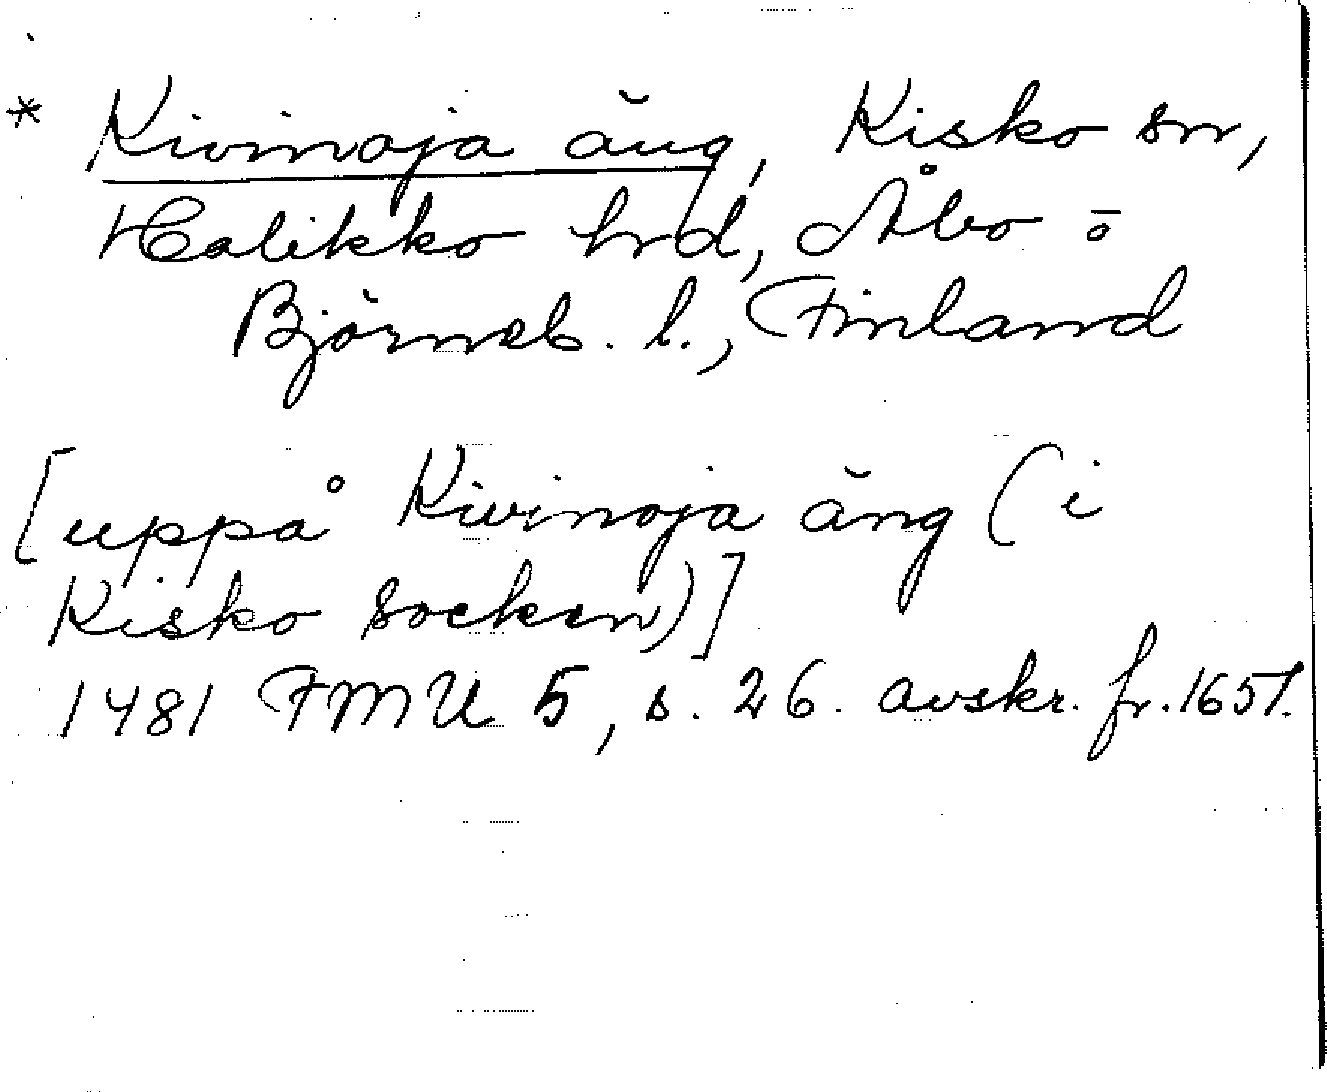 * Kivinoja äng, Kisko sn,
Halikko hrd, Åbo o
Björneb. l., Finland
[uppå Kivinoja äng (i
Kisko socken)]
1481 FMU 5, s. 26. avskr. fr. 1651.